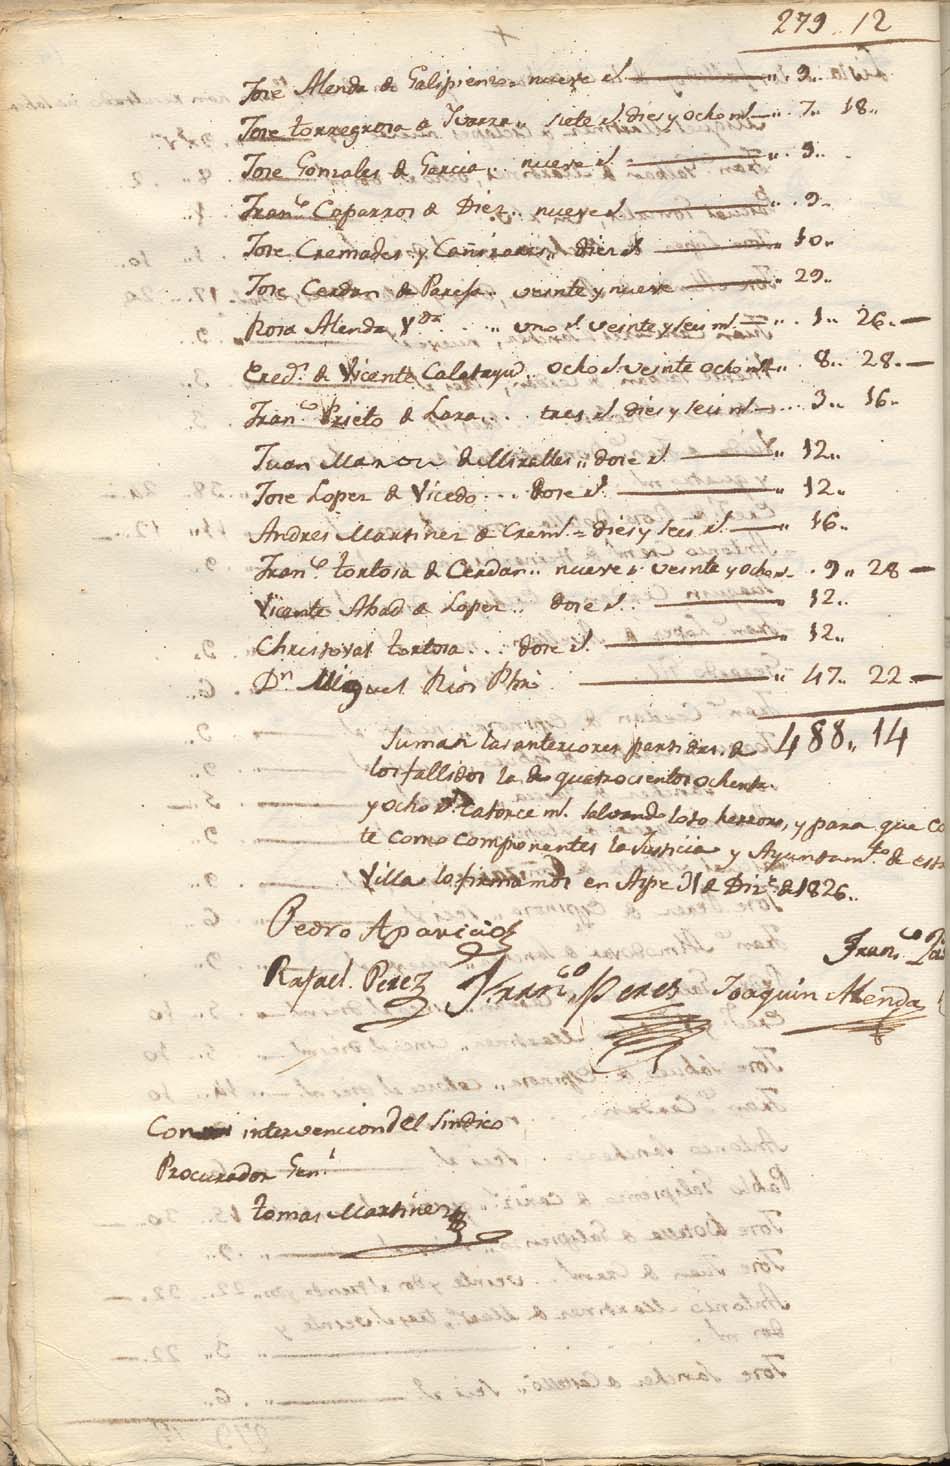 279.. 12
Jose Alenda de Galipienso.. nueve r.s .. 9..
Jose torregrosa a Yvarra.. siete r.s dies y ocho m.s .. 7.. 18..
Jose Gonzales de Garcia.. nueve r.s .. 9..
Fran.co Caparros de Diez.. nueve r.s .. 9..
Jose Cremades y Cañizares.. diez r.s .. 10..
Jose Cerdan de Pareja.. veinte y nueve .. 29..
Rosa Alenda V.da .. uno r.s veinte y seis m.s .. 1.. 26..
Ered.s de Vicente Calatayu.. ocho r.s veinte ocho m.s .. 8.. 28..
Fran.co Prieto de Lara... tres r.s dies y seis m.s ... 3.. 16..
Juan de Miralles.. dose r.s .. 12..
Jose Lopez de Vicedo... dose r.s .. 12..
Andres Martinez de Crem.s = dies y seis r.s .. 16..
Fran.co tortosa de Cerdan.. nueve r.s veinte y ocho m.s . 9.. 28
Vicente Abad de Lopez.. dose r.s .. 12..
Christoval tortosa... dose r.s .. 12..
D.n Miguel Rios .. 47.. 22
Suman las anteriores partidas de 488.. 14
los fallidos la de quatrocientos ochenta
y ocho r.s catorce m.s salvando loso herrores, y para que co
te como componentes la Justicia y Ayuntam.to de esta
Villa lo firmamos en Aspe 31 de Diz.e de 1826..
Pedro Aparicio
Fran.co
Rafael. Perez Fran.co Perez Joaquin Alenda
Con intervencion del Sindico
Procurador Gen.l
tomas Martinez